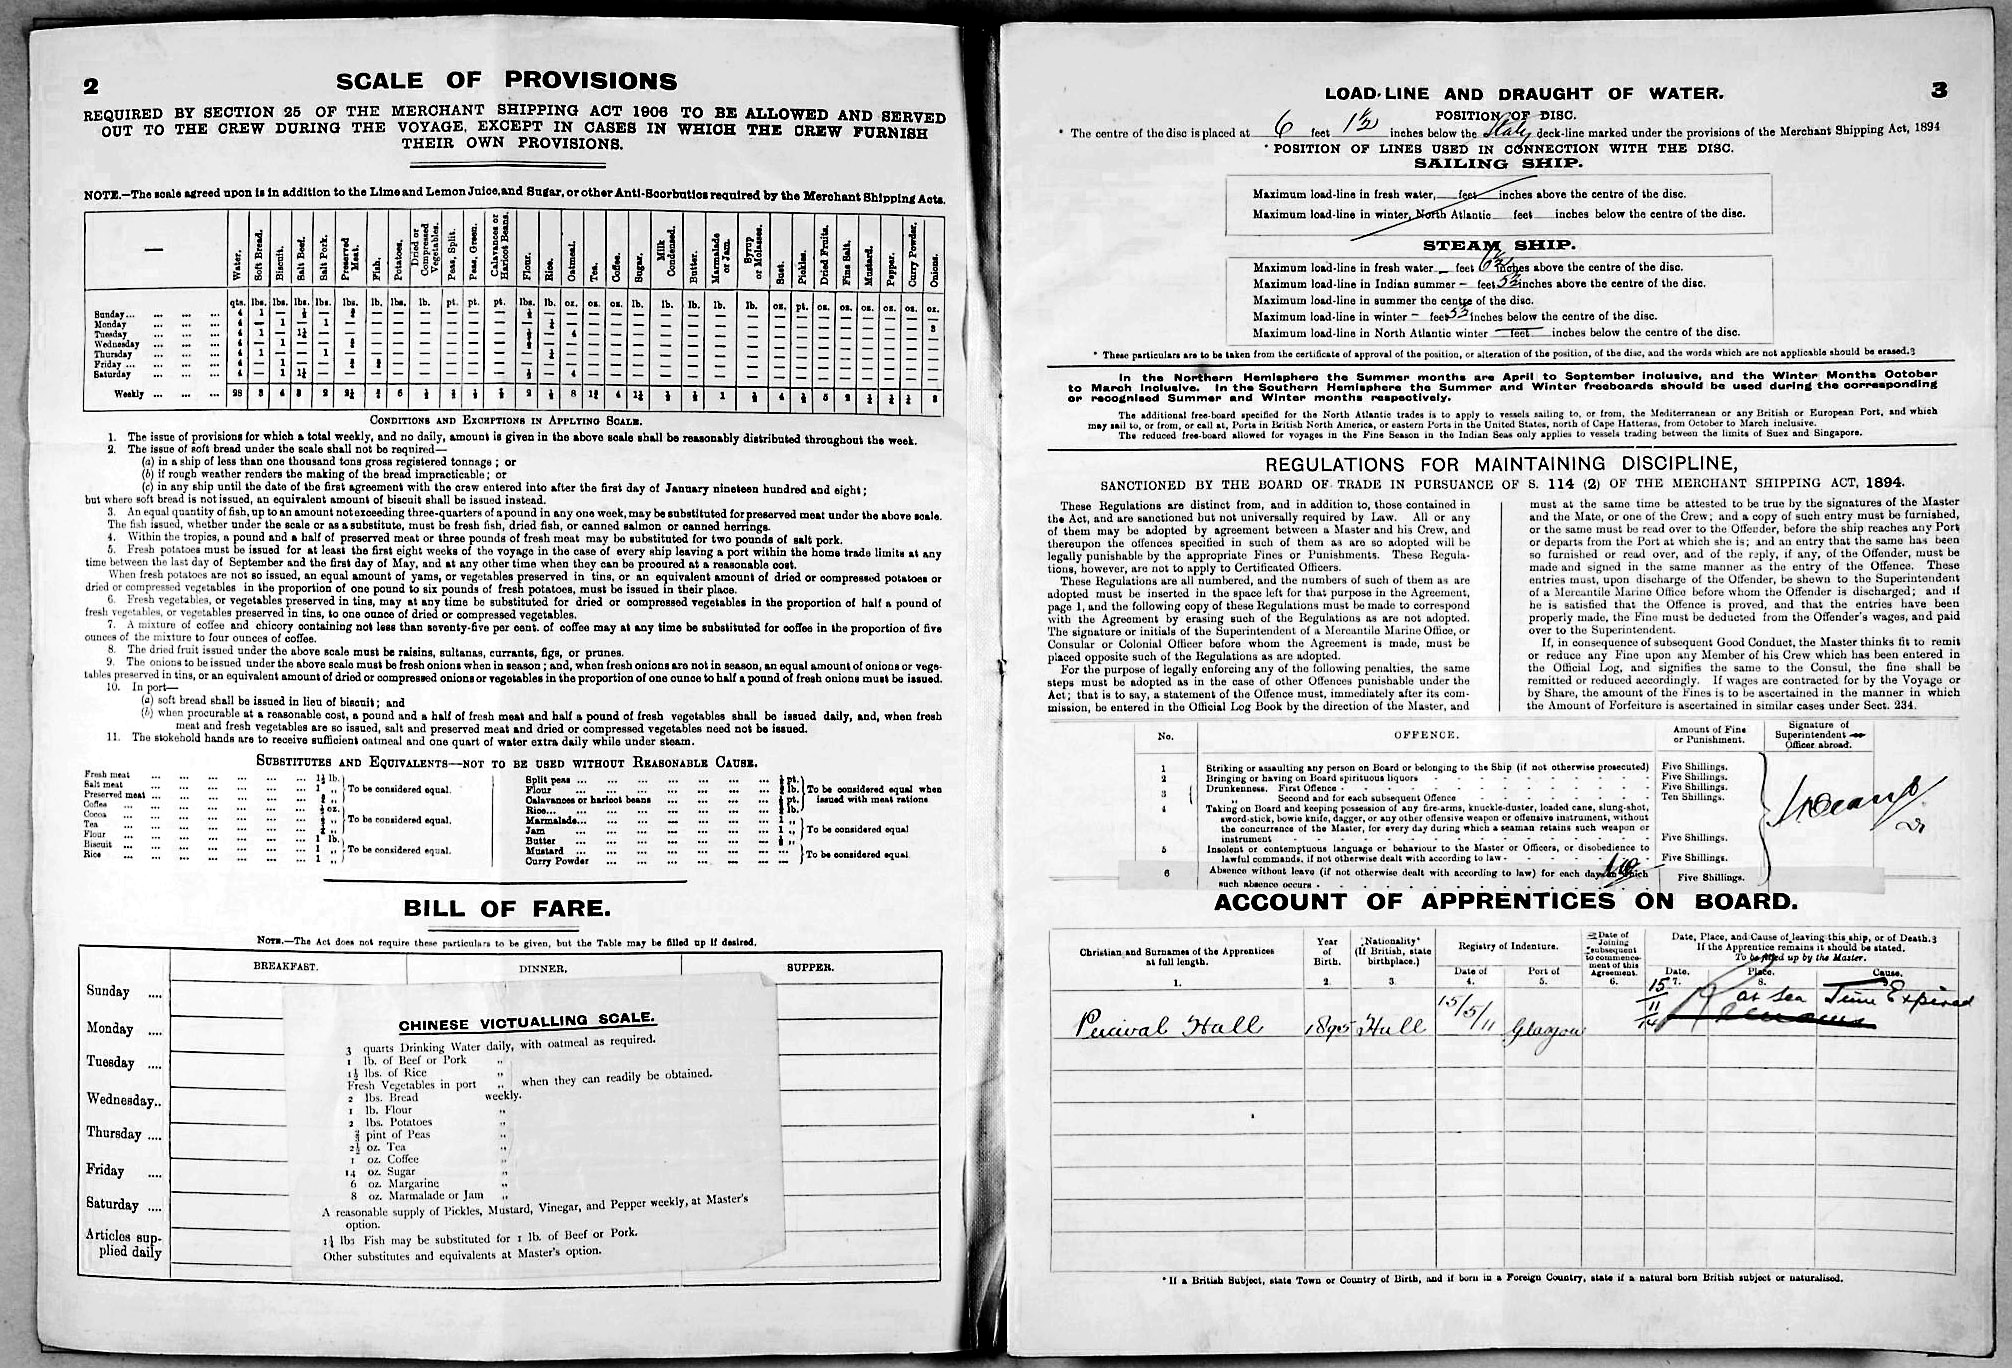 2
SCALE OF PROVISIONS
REQUIRED BY SECTION 25 OF THE MERCHANT SHIPPING ACT 1906 TO BE ALLOWED AND SERVED
OUT TO THE CREW DURING THE VOYAGE, EXCEPT IN CASES IN WHICH THE CREW FURNISH
THEIR OWN PROVISIONS.
NOTE.—The scale agreed upon is in addition to the Lime and Lemon Juice, and Sugar, or other Anti-Scorbutics required by the Merchant Shipping Acts.
— Water. Soft Bread. Biscuit. Salt Beef. Salt Pork. Preserved Meat. Fish. Potatoes. Dried or Compressed Vegetables. Peas, Split. Peas, Green. Calavances or Haricot Beans. Flour. Rice. Oatmeal. Tea. Coffee. Sugar. Milk Condensed. Butter. Marmalade or Jam. Syrup or Molasses. Suet. Pickles. Dried Fruits. Fine Salt. Mustard. Pepper. Curry Powder. Onions.
qts. lbs. lbs. lbs. lbs. lbs. lb. lbs. lb. pt. pt. pt. lbs. lb. oz. oz. oz. lb. lb. lb. lb. lb. oz. pt. oz. oz. oz. oz. oz. oz.
Sunday... 4 1
Monday 4 — 1 — 1
Tuesday 4 1
Wednesday 4 — 1
Thursday 4 1 — — 1
Friday ... 4 — 1
Saturday 4 — 1
Weekly 28 3 4 3 2
CONDITIONS AND EXCEPTIONS IN APPLYING SCALE.
1. The issue of provisions for which a total weekly, and no daily, amount is given in the above scale shall be reasonably distributed throughout the week.
2. The issue of soft bread under the scale shall not be required—
(a) in a ship of less than one thousand tons gross registered tonnage; or
(b) if rough weather renders the making of the bread impracticable; or
(c) in any ship until the date of the first agreement with the crew entered into after the first day of January nineteen hundred and eight;
but where soft bread is not issued, an equivalent amount of biscuit shall be issued instead.
3. An equal quantity of fish, up to an amount not exceeding three-quarters of a pound in any one week, may be substituted for preserved meat under the above scale.
The fish issued, whether under the scale or as a substitute, must be fresh fish, dried fish, or canned salmon or canned herrings.
4. Within the tropics, a pound and a half of preserved meat or three pounds of fresh meat may be substituted for two pounds of salt pork.
5. Fresh potatoes must be issued for at least the first eight weeks of the voyage in the case of every ship leaving a port within the home trade limits at any
time between the last day of September and the first day of May, and at any other time when they can be procured at a reasonable cost.
When fresh potatoes are not so issued, an equal amount of yams, or vegetables preserved in tins, or an equivalent amount of dried or compressed potatoes or
dried or compressed vegetables in the proportion of one pound to six pounds of fresh potatoes, must be issued in their place.
6. Fresh vegetables, or vegetables preserved in tins, may at any time be substituted for dried or compressed vegetables in the proportion of half a pound of
fresh vegetables, or vegetables preserved in tins, to one ounce of dried or compressed vegetables.
7. A mixture of coffee and chicory containing not less than seventy-five per cent. of coffee may at any time be substituted for coffee in the proportion of five
ounces of the mixture to four ounces of coffee.
8. The dried fruit issued under the above scale must be raisins, sultanas, currants, figs, or prunes.
9. The onions to be issued under the above scale must be fresh onions when in season; and, when fresh onions are not in season, an equal amount of onions or vege-
tables preserved in tins, or an equivalent amount of dried or compressed onions or vegetables in the proportion of one ounce to half a pound of fresh onions must be issued.
10. In port—
(a) soft bread shall be issued in lieu of biscuit; and
(b) when procurable at a reasonable cost, a pound and a half of fresh meat and half a pound of fresh vegetables shall be issued daily, and, when fresh
meat and fresh vegetables are so issued, salt and preserved meat and dried or compressed vegetables need not be issued.
11. The stokehold hands are to receive sufficient oatmeal and one quart of water extra daily while under steam.
SUBSTITUTES AND EQUIVALENTS—NOT TO BE USED WITHOUT REASONABLE CAUSE.
Fresh meat 1½ lb.
Salt meat 1 „ To be considered equal.
Preserved meat
Coffee
Cocoa To be considered equal.
Tea
Flour 1 lb.
Biscuit 1 „ To be considered equal.
Rice 1 „
Split peas
Flour To be considered equal when
Calavances or haricot beans issued with meat rations
Rice...
Marmalade... 1 „
Jam 1 „ To be considered equal
Butter
Mustard To be considered equal.
Curry Powder
BILL OF FARE.
NOTE.—The Act does not require these particulars to be given, but the Table may be filled up if desired.
BREAKFAST. DINNER. SUPPER.
Sunday ....
Monday ....
Tuesday ....
Wednesday..
Thursday ....
Friday ....
Saturday ....
Articles sup-
plied daily
CHINESE VICTUALLING SCALE.
3 quarts Drinking Water daily, with oatmeal as required.
1 lb. of Beef or Pork „
1½ lbs. of Rice „
Fresh Vegetables in port „ when they can readily be obtained.
2 lbs. Bread weekly.
1 lb. Flour „
2 lbs. Potatoes „
⅔ pint of Peas „
2½ oz. Tea „
1 oz. Coffee „
14 oz. Sugar „
6 oz. Margarine „
8 oz. Marmalade or Jam „
A reasonable supply of Pickles, Mustard, Vinegar, and Pepper weekly, at Master's
option.
1¼ lbs Fish may be substituted for 1 lb. of Beef or Pork.
Other substitutes and equivalents at Master's option.
3
LOAD-LINE AND DRAUGHT OF WATER.
POSITION OF DISC.
* The centre of the disc is placed at 6 feet 1½ inches below the Staty deck-line marked under the provisions of the Merchant Shipping Act, 1894
* POSITION OF LINES USED IN CONNECTION WITH THE DISC.
SAILING SHIP.
Maximum load-line in fresh water, feet inches above the centre of the disc.
Maximum load-line in winter, North Atlantic feet inches below the centre of the disc.
STEAM SHIP.
Maximum load-line in fresh water – feet inches above the centre of the disc.
Maximum load-line in Indian summer – feet inches above the centre of the disc.
Maximum load-line in summer the centre of the disc.
Maximum load-line in winter – feet inches below the centre of the disc.
Maximum load-line in North Atlantic winter feet inches below the centre of the disc.
* These particulars are to be taken from the certificate of approval of the position, or alteration of the position, of the disc, and the words which are not applicable should be erased.
In the Northern Hemisphere the Summer months are April to September inclusive, and the Winter Months October
to March inclusive. In the Southern Hemisphere the Summer and Winter freeboards should be used during the corresponding
or recognised Summer and Winter months respectively.
The additional free-board specified for the North Atlantic trades is to apply to vessels sailing to, or from, the Mediterranean or any British or European Port, and which
may sail to, or from, or call at, Ports in British North America, or eastern Ports in the United States, north of Cape Hatteras, from October to March inclusive.
The reduced free-board allowed for voyages in the Fine Season in the Indian Seas only applies to vessels trading between the limits of Suez and Singapore.
REGULATIONS FOR MAINTAINING DISCIPLINE,
SANCTIONED BY THE BOARD OF TRADE IN PURSUANCE OF S. 114 (2) OF THE MERCHANT SHIPPING ACT, 1894.
These Regulations are distinct from, and in addition to, those contained in
the Act, and are sanctioned but not universally required by Law. All or any
of them may be adopted by agreement between a Master and his Crew, and
thereupon the offences specified in such of them as are so adopted will be
legally punishable by the appropriate Fines or Punishments. These Regula-
tions, however, are not to apply to Certificated Officers.
These Regulations are all numbered, and the numbers of such of them as are
adopted must be inserted in the space left for that purpose in the Agreement,
page 1, and the following copy of these Regulations must be made to correspond
with the Agreement by erasing such of the Regulations as are not adopted.
The signature or initials of the Superintendent of a Mercantile Marine Office, or
Consular or Colonial Officer before whom the Agreement is made, must be
placed opposite such of the Regulations as are adopted.
For the purpose of legally enforcing any of the following penalties, the same
steps must be adopted as in the case of other Offences punishable under the
Act; that is to say, a statement of the Offence must, immediately after its com-
mission, be entered in the Official Log Book by the direction of the Master, and
must at the same time be attested to be true by the signatures of the Master
and the Mate, or one of the Crew; and a copy of such entry must be furnished,
or the same must be read over to the Offender, before the ship reaches any Port
or departs from the Port at which she is; and an entry that the same has been
so furnished or read over, and of the reply, if any, of the Offender, must be
made and signed in the same manner as the entry of the Offence. These
entries must, upon discharge of the Offender, be shewn to the Superintendent
of a Mercantile Marine Office before whom the Offender is discharged; and if
he is satisfied that the Offence is proved, and that the entries have been
properly made, the Fine must be deducted from the Offender's wages, and paid
over to the Superintendent.
If, in consequence of subsequent Good Conduct, the Master thinks fit to remit
or reduce any Fine upon any Member of his Crew which has been entered in
the Official Log, and signifies the same to the Consul, the fine shall be
remitted or reduced accordingly. If wages are contracted for by the Voyage or
by Share, the amount of the Fines is to be ascertained in the manner in which
the Amount of Forfeiture is ascertained in similar cases under Sect. 234.
No. OFFENCE. Amount of Fine or Punishment. Signature of Superintendent or Officer abroad.
1 Striking or assaulting any person on Board or belonging to the Ship (if not otherwise prosecuted) Five Shillings.
2 Bringing or having on Board spirituous liquors Five Shillings.
3 Drunkenness. First Offence Five Shillings.
„ Second and for each subsequent Offence Ten Shillings.
4 Taking on Board and keeping possession of any fire-arms, knuckle-duster, loaded cane, slung-shot,
sword-stick, bowie knife, dagger, or any other offensive weapon or offensive instrument, without
the concurrence of the Master, for every day during which a seaman retains such weapon or
instrument Five Shillings.
5 Insolent or contemptuous language or behaviour to the Master or Officers, or disobedience to
lawful commands, if not otherwise dealt with according to law Five Shillings.
6 Absence without leave (if not otherwise dealt with according to law) for each day in which
such absence occurs Five Shillings.
ACCOUNT OF APPRENTICES ON BOARD.
Christian and Surnames of the Apprentices at full length. Year of Birth. *Nationality* (If British, state birthplace.) Registry of Indenture. Date of Joining subsequent to commencement of this Agreement. Date, Place, and Cause of leaving this ship, or of Death.
If the Apprentice remains it should be stated.
To be filled up by the Master.
Date of Port of Date. Place. Cause.
1. 2. 3. 4. 5. 6. 7. 8.
Percival Hall 1895 Hull 15/5/11 Glasgow 15/11/14 at sea Time Expired
Remains
* If a British Subject, state Town or Country of Birth, and if born in a Foreign Country, state if a natural born British subject or naturalised.